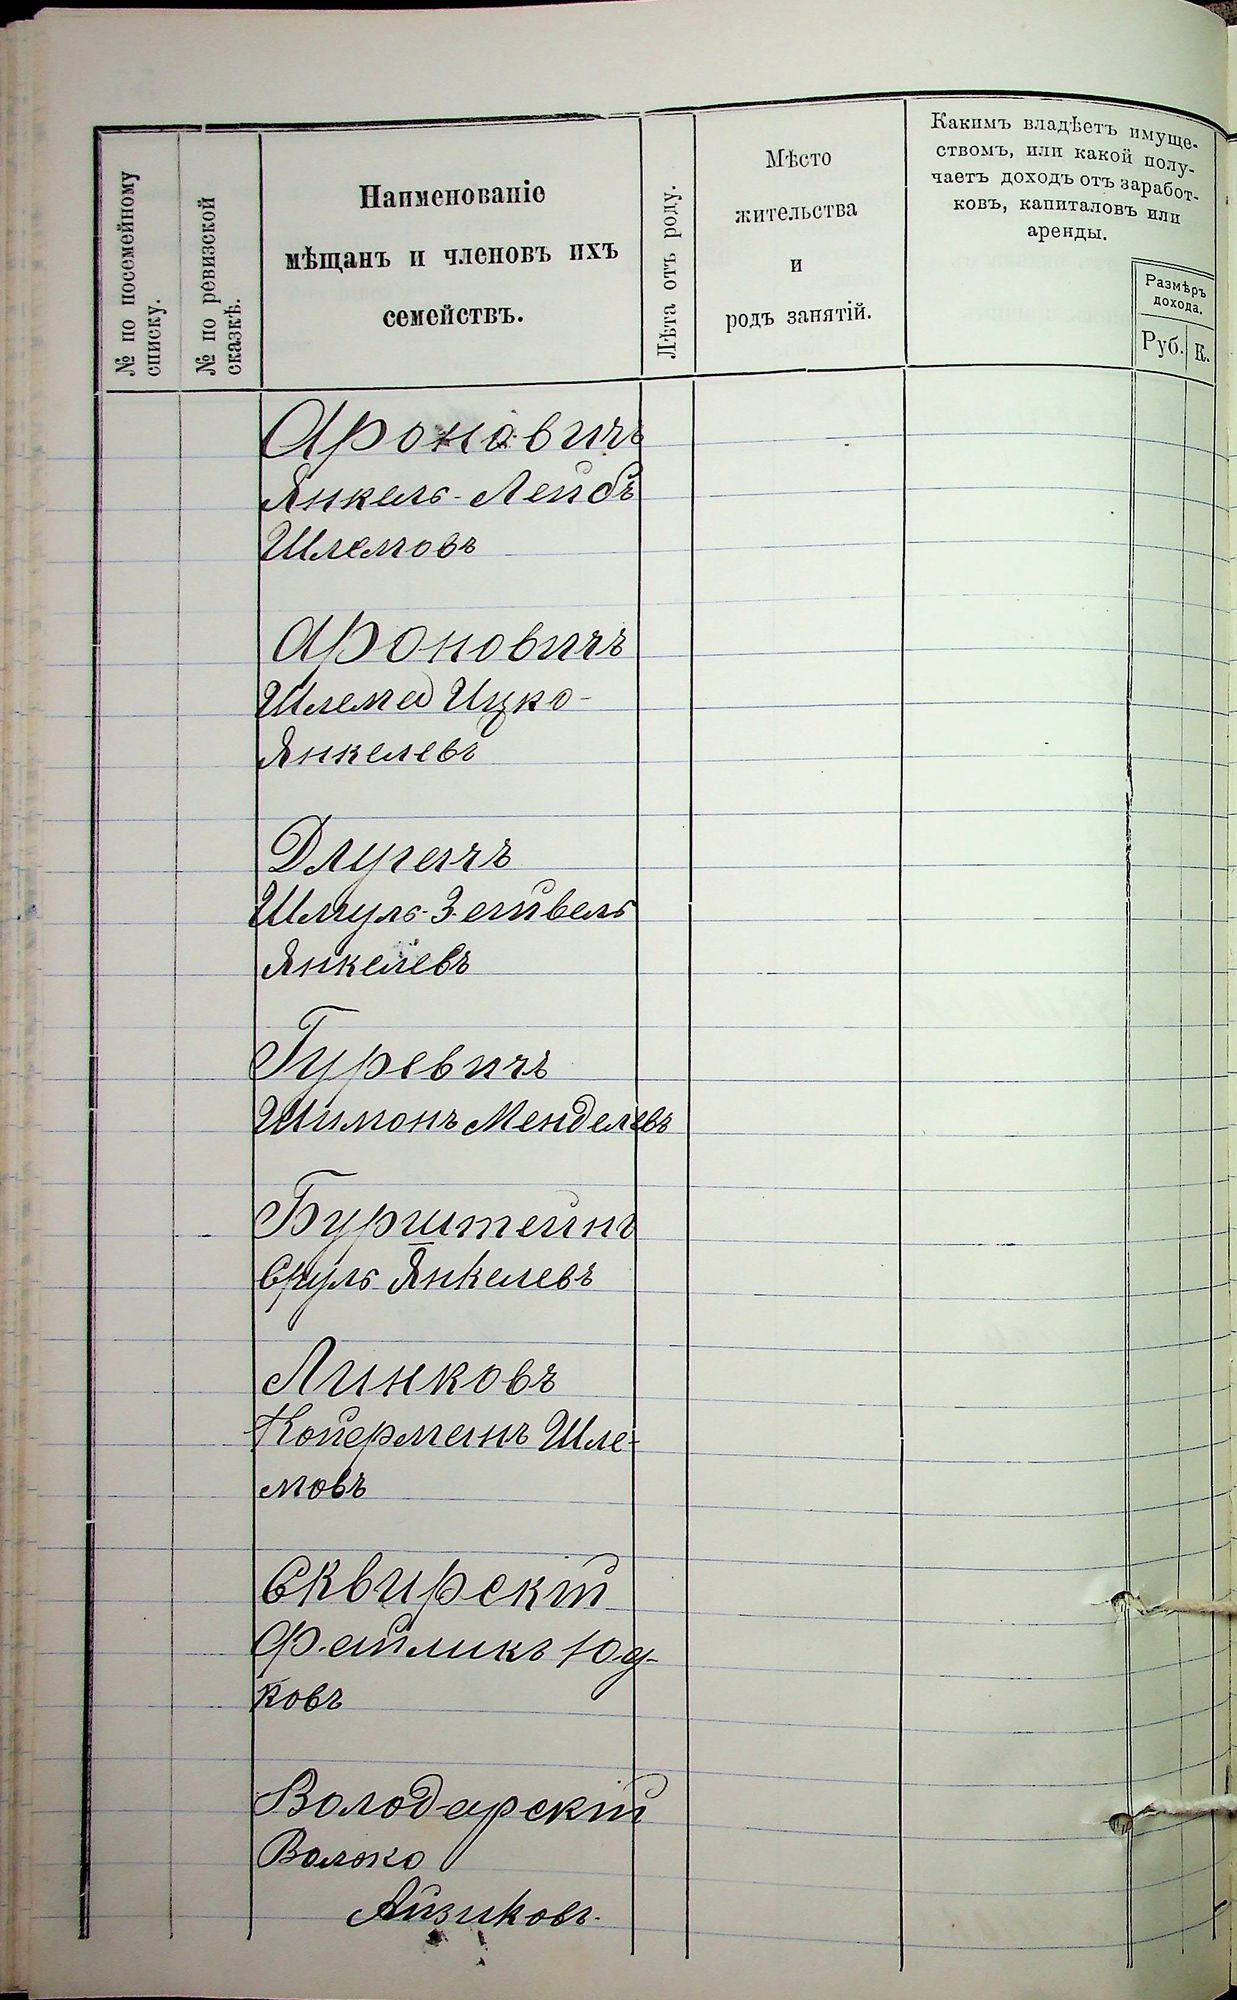 № по посемейному
списку.
№ по ревизской
сказкѣ.
Наименованіе
мѣщанъ и членовъ ихъ
семействъ.
Лѣта отъ роду.
Мѣсто
жительства
и
родъ занятій.
Какимъ владѣетъ имуще-
ствомъ, или какой полу-
чаетъ доходъ отъ заработ-
ковъ, капиталовъ или
аренды.
Размѣръ
дохода.
Руб. К.
Ароновичъ
Янкель-Лейбъ
Шлемовъ
Ароновичъ
Шлема Ицко-
Янкелевъ
Длугачъ
Шмуль-Зейвель
Янкелевъ
Гуревичъ
Шимонъ Менделевъ
Бурштейнъ
Сруль Янкелевъ
Линковъ
Койерманъ Шле-
мовъ
Сквирскій
Файликъ Юд-
ковъ
Володарскій
Волько
Айзиковъ.